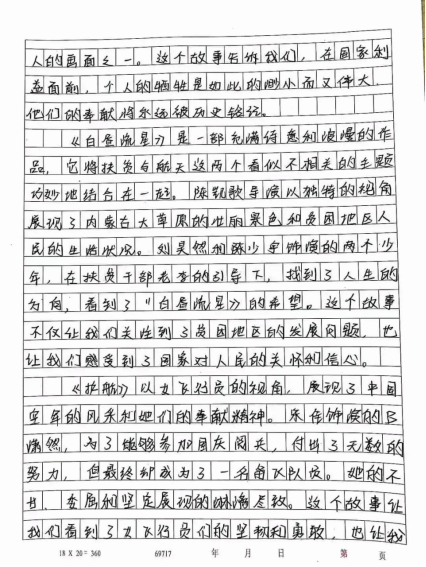 人的画面之一。这个故事告诉我们,在国家利
益面前,个人的牺牲是如此的渺小而又伟大,
他们的奉献将永远被历史铭记。
《白昼流星》是一部充满诗意和浪漫的作
品,它将扶贫与航天这两个看似不相关的主题
巧妙地结合在一起。陈凯歌导演以独特的视角
展现了内蒙古大草原的壮丽景色和贫困地区人
民的生活状况。刘昊然和陈少宇饰演的两个少
年,在扶贫干部老李的引导下,找到了人生的
方向,看到了《白昼流星》的希望。这个故事
不仅让我们关注到了贫困地区的发展问题,也
让我们感受到了国家对人民的关怀和信心。
《护航》以女飞行员的视角,展现了中国
空军的风采和她们的奉献精神。宋佳饰演的吕
潇然,为了能够参加国庆阅兵,付出了无数的
努力,但最终却成为了一名备飞队员。她的不
甘、委屈和坚定展现的淋漓尽致。这个故事让
我们看到了女飞行员们的坚韧和勇敢,也让我
18 X 20 = 360 69717 年 月 日 第 页